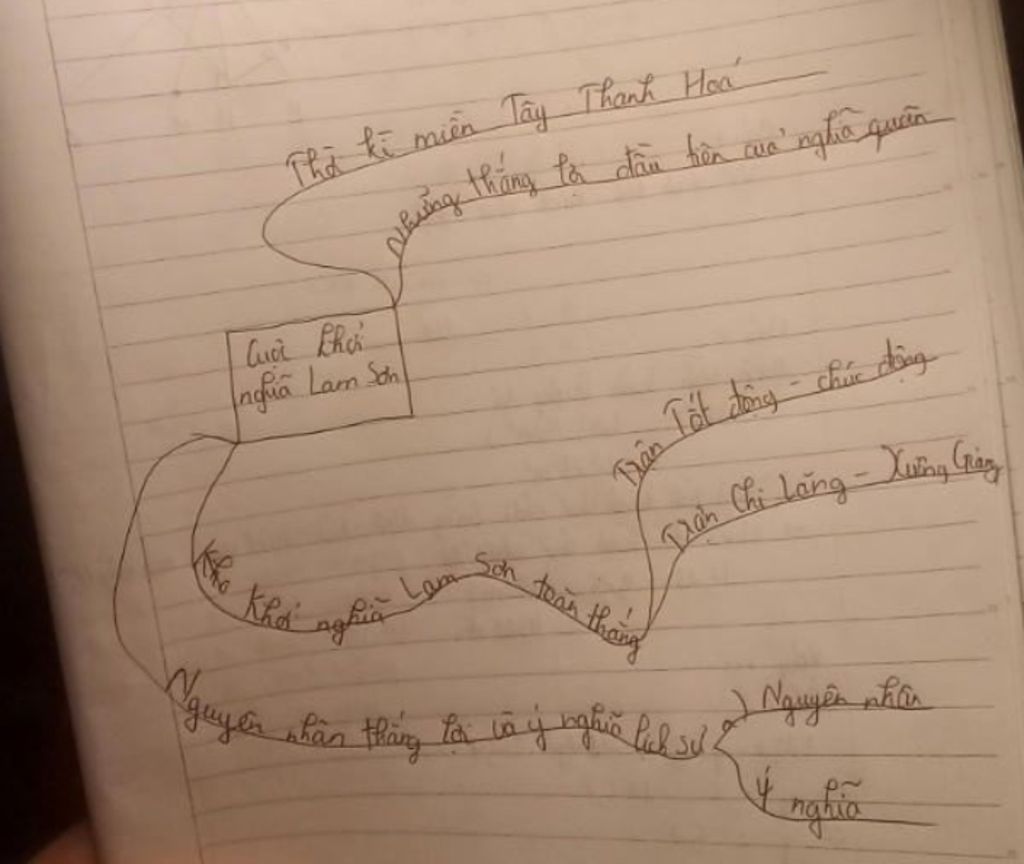 Thời kì miền Tây Thanh Hoá
Những thắng lợi đầu tiên của nghĩa quân
Cuộc khởi
nghĩa Lam Sơn
Trận Tốt động - chúc động
Trận Chi Lăng - Xương Giang
Khởi nghĩa Lam Sơn toàn thắng
Nguyên nhân thắng lợi và ý nghĩa lịch sử
Nguyên nhân
Ý nghĩa